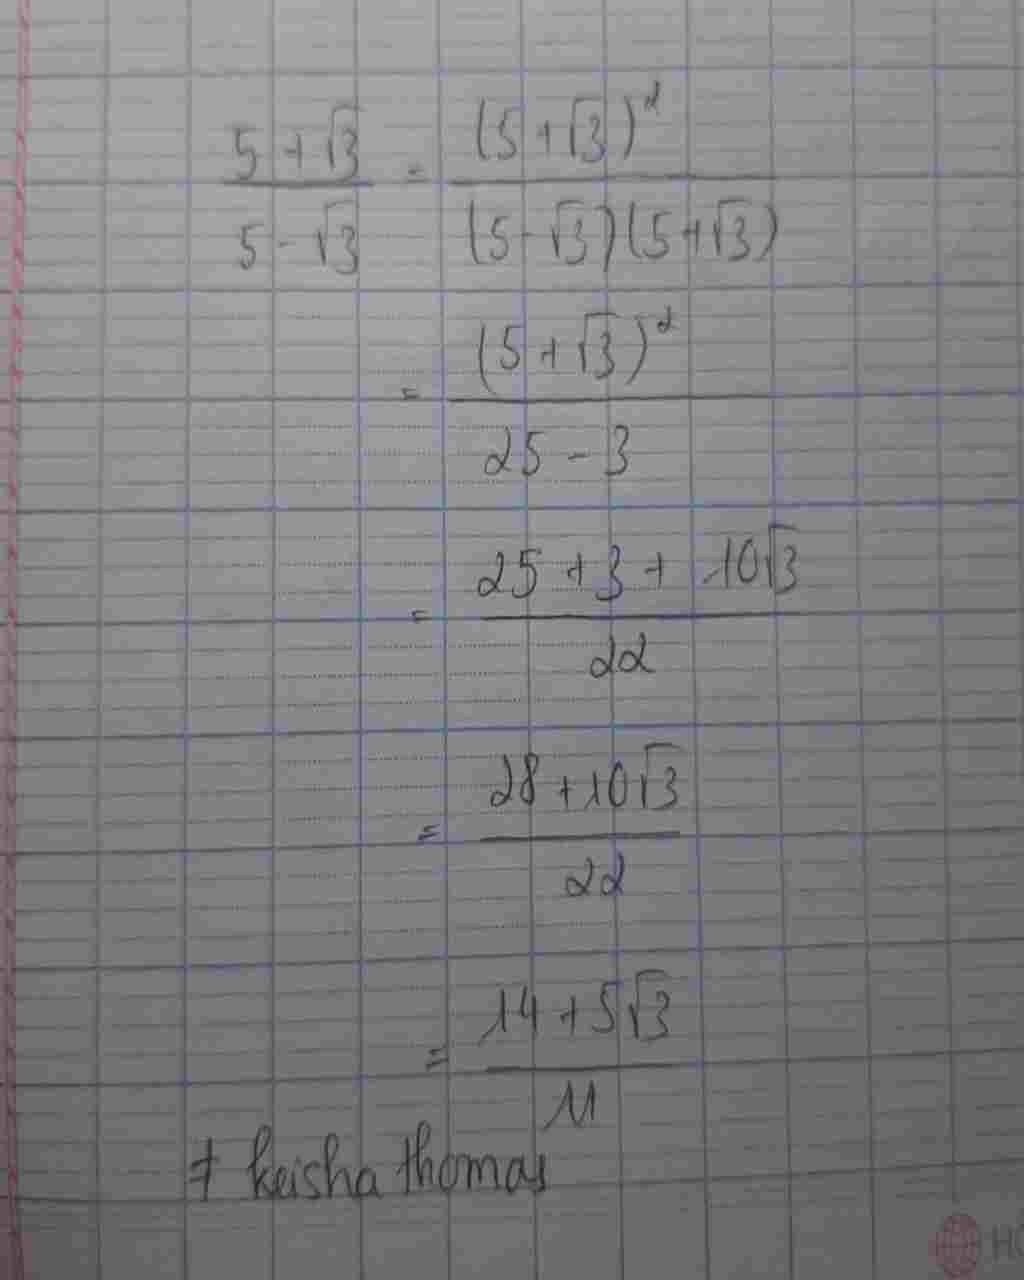 (5 + √3) / (5 - √3) = (5 + √3)² / (5 - √3)(5 + √3)
= (5 + √3)² / 25 - 3
= 25 + 3 + 10√3 / 22
= 28 + 10√3 / 22
= 14 + 5√3 / 11
# keisha thomas